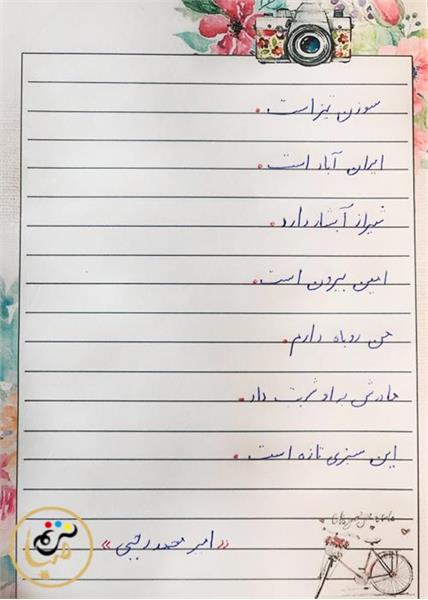 سوزن تیز است.
ایران آباد است.
شیراز آبشار دارد.
امین بیرون است.
من روباه دارم.
مادرش به او شربت داد.
این سبزی تازه است.
«امیر محمد رجبی»